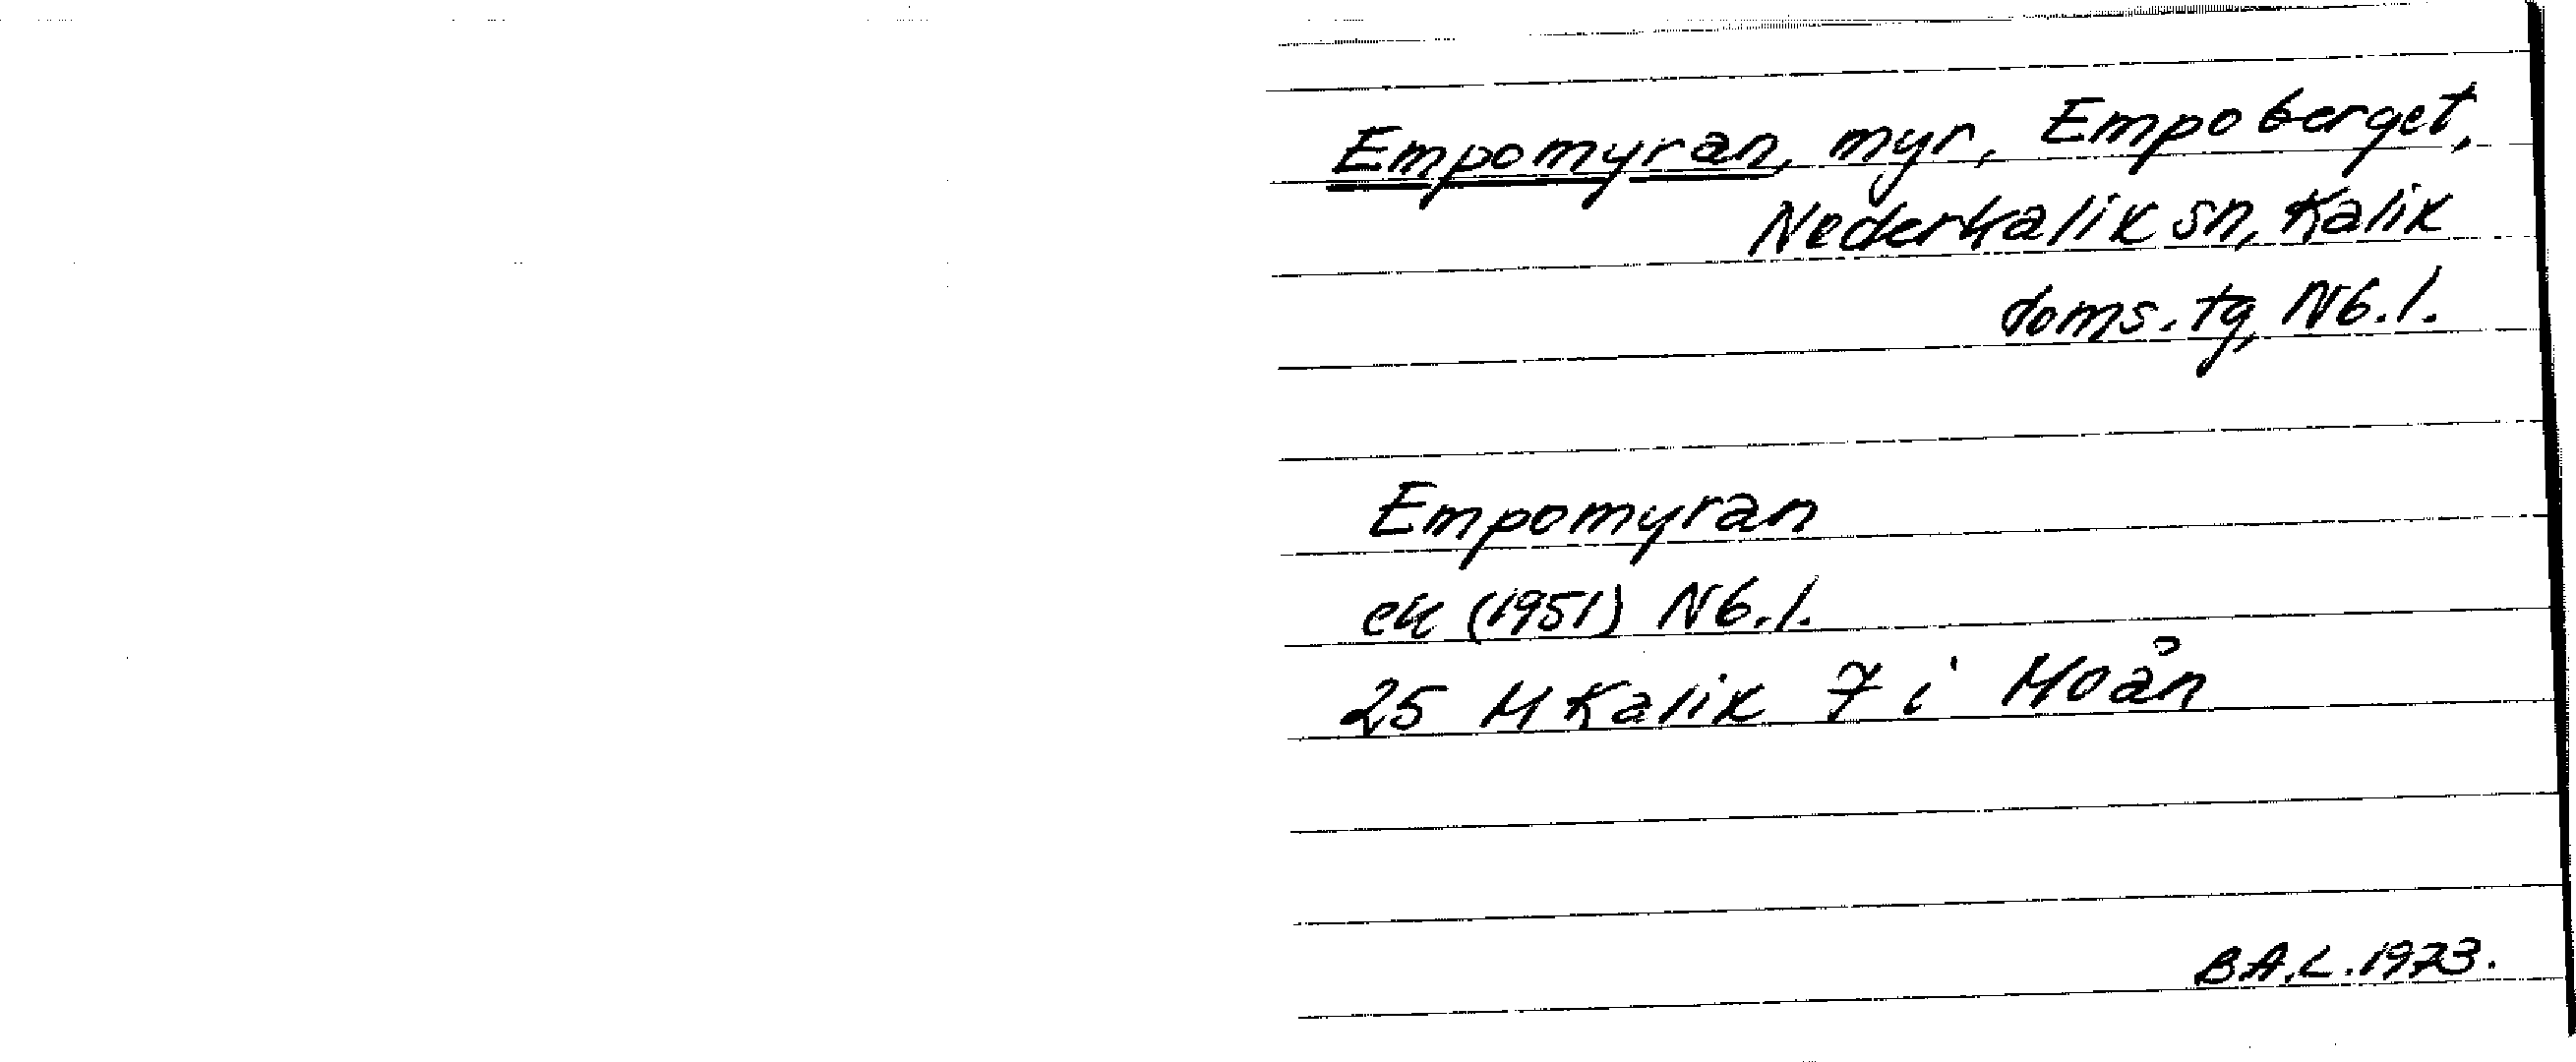 Empomyran, myr, Empoberget,
Nederkalix sn, Kalix
doms.tg, Nb.l.
Empomyran
ek (1951) Nb.l.
25 M Kalix 7 i Moån
B.A.L. 1973.